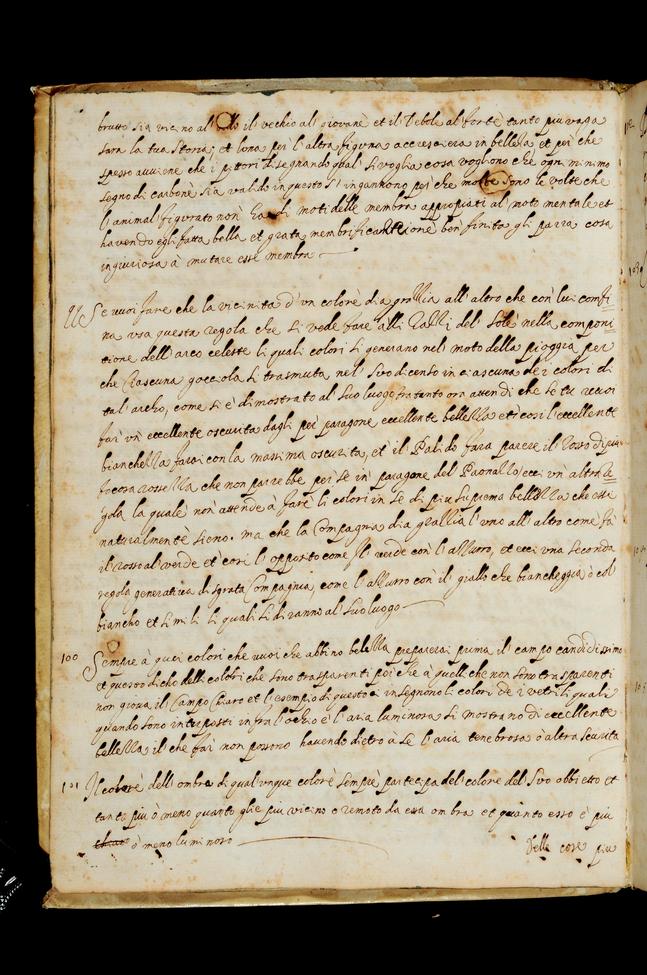 brutto sia vicino al bello il vechio al giovane et il debole al forte tanto piu vaga
sara la tua storia; et lona per l'altra figurna accrescera in belleza et per che
spesso aviene che i pittori disegnando qual si voglia cosa vogliono che ogni minimo
segno di carbone sia valido in questo s'ingannono per che molte sono le volte che
l'animal figurato non ha li moti delle membra appropiati al moto mentale et
havendo egli fatta bella et grata membrificatione ben finita gli parra cosa
ingiuriosa à mutare esse membra
99 Se vuoi fare che la vicinita d'un colore dia grattia all'altro che con lui confi
na usa questa regola che si vede fare alli razzi del sole nella componi
tione dell'arco celeste li quali colori si generano nel moto della pioggia per
che ciascuna gocciola si trasmuta nel suo dicenso in ciascuna de i colori di
tal archo, come si è dimostrato al suo luogo fra tanto ora attendi che se tu vuoi
far un eccellente oscurita dagli per paragone eccellente bellezza et cosi l'eccellente
bianchezza farai con la massima oscurita, et il Palido fara parere il rosso di piu
focosa rossezza che non parrebbe per se in paragone del Paonazzo ecci un altra re
gola la quale non attende à fare li colori in se di piu suprema bellezza che essi
naturalmente sieno. ma che la compagnia dia grattia l'uno all'altro come fà
il rosso al verde et cosi l'opposto come il verde con l'azzurro, et ecci una seconda
regola generativa di sgrata compagnia, come l'azzurro con il giallo che biancheggia ò col
biancho et simili li quali si diranno al suo luogo
100 Sempre à quei colori che vuoi che abbino belezza preparerai prima il campo candidissimo
et questo dicho delli colori che sono trasparenti poi che à quelli che non sono trasparenti
non giova il campo chiaro et l'esempio di questo c'insegnono li colori de i vetri li quali
quando sono interposti infra l'occhio e l'aria luminosa si mostrano di eccellente
bellezza il che far non possono havendo dietro à se l'aria tenebrosa ò altra scurita
101 Il colore dell'ombra di qualunque colore sempre partecipa del colore del suo obbietto et
tanto piu ò meno quanto gli e piu vicino o remoto da essa ombra et quanto esso è piu
ò meno luminoso
Delle cose piu